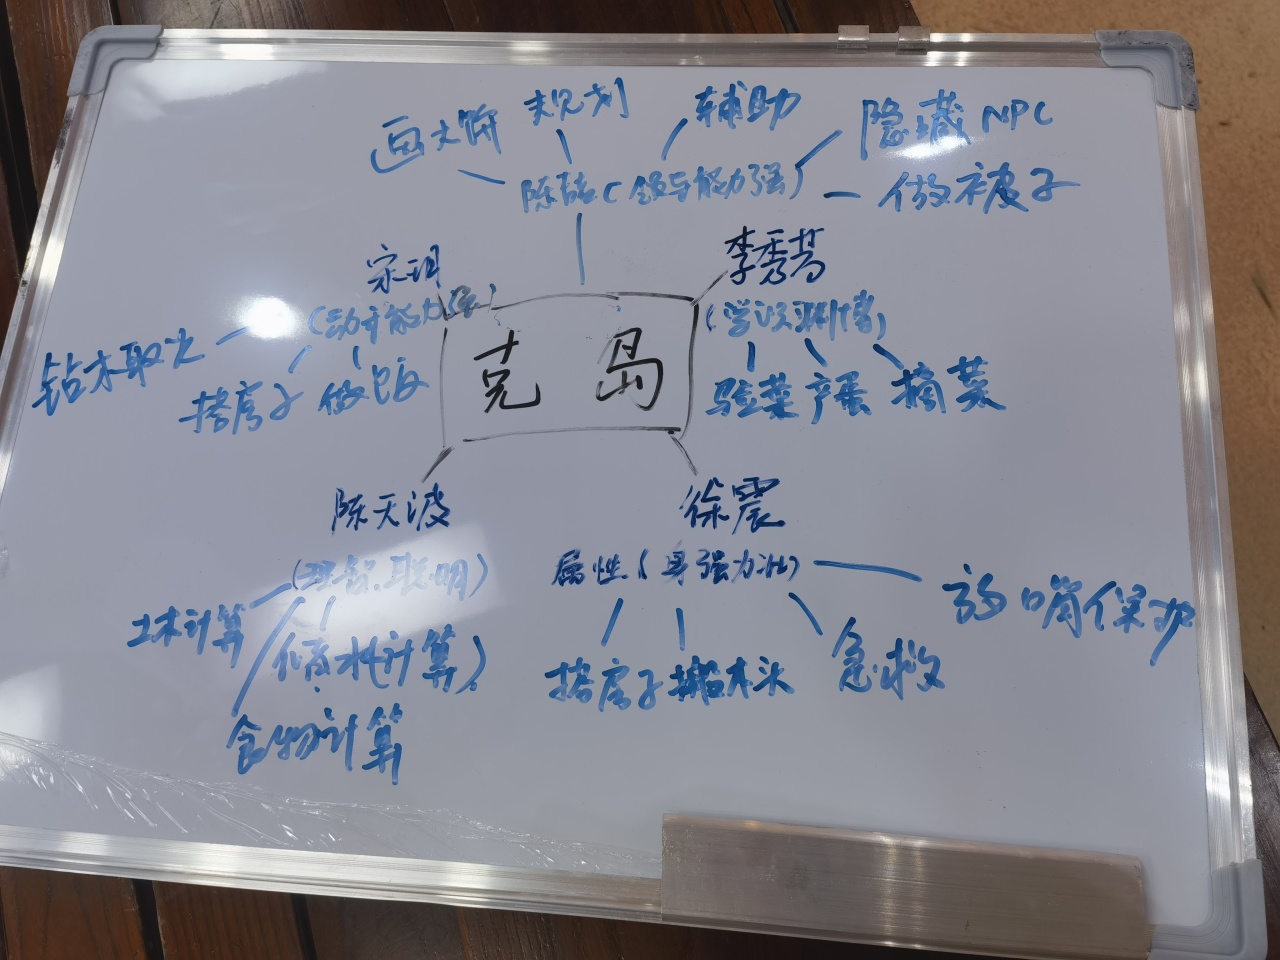 画大饼 规划 辅助 隐藏NPC
陈喆(领导能力强) 做被子
宋玥
(动手能力强)
钻木取火 搭房子 做饭
李秀芳
(学识渊博)
验菜 产蛋 摘菜
克岛
陈天波
(理智.聪明)
土木计算 储水(计算)
食物计算
徐震
属性(身强力壮)
搭房子 搬木头 急救 嘴保护